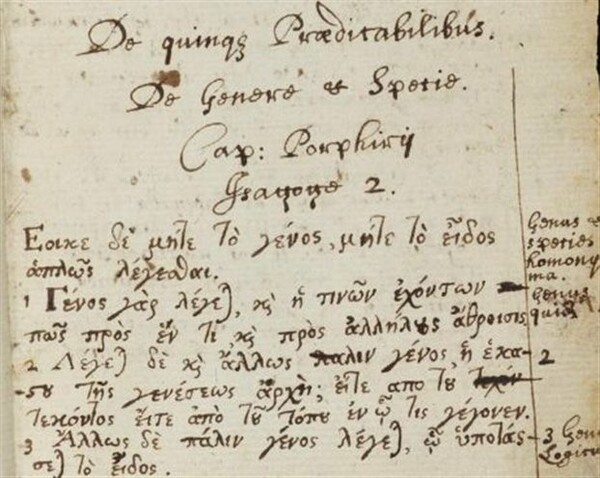 De quinqꝫ Prædicabilibus.
De Genere et Specie.
Cap: Porphirij
Isagoge 2.
Εοικε δὲ μήτε τὸ γένος, μήτε τὸ εἶδος
ἁπλῶς λέγεσθαι.
1 Γένος γὰρ λέγε), κὶ ἡ τινῶν ἐχόντων
πῶς πρὸς ἕν τι, κὶ πρὸς ἀλλήλȣς ἄθροισις
2 Λέγε) δὲ κὶ ἄλλως παλιν γένος, ἡ ἑκα-
-ϛȣ τῆς γενέσεως ἀρχὴ; εἴτε απο τȣ
τεκόντος εἴτε ἀπὸ τȣ͂ τόπȣ ἐν ᾧ τις γέγονεν.
3 Ἄλλως δὲ πάλιν γένος λέγε), ᾧ ὑποτάσ-
σε) τὸ εἶδος.
Genus et
species
homony
ma.
Genus
quid
2
3 Genu
Logicu